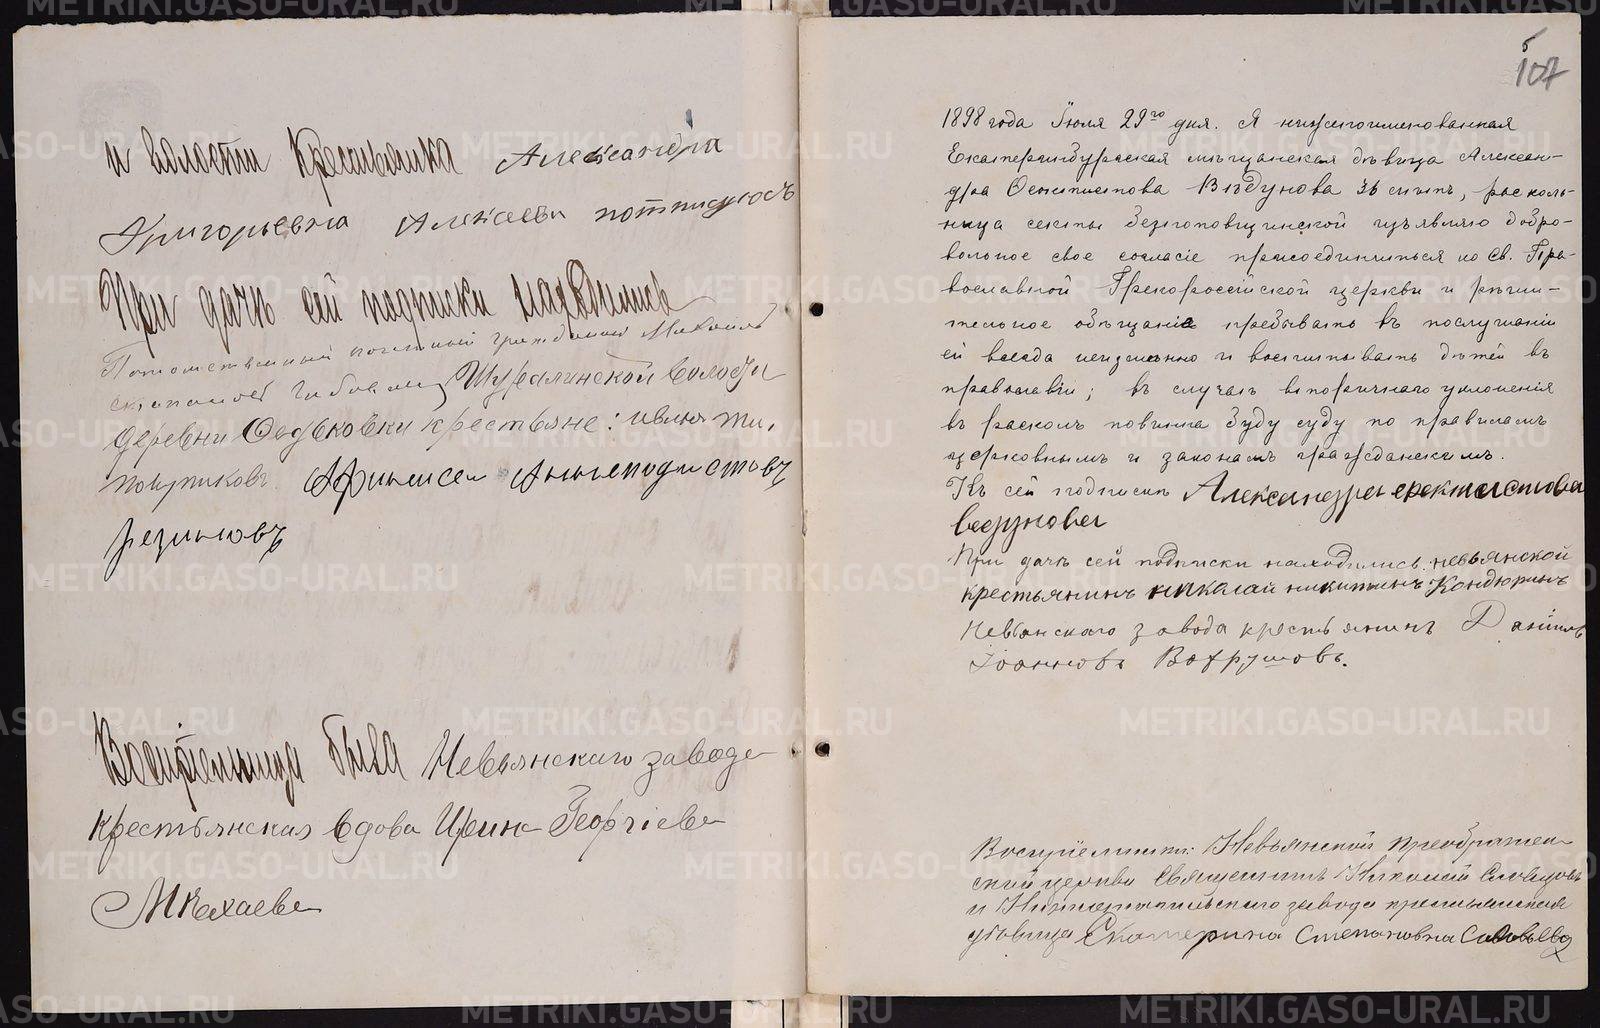 и волости крестьянина Александра
Григорьевна Алексеева
При дачѣ сей подписки находились
Потомственный почетный гражданин Михаилъ
Шуралинской волости
деревни крестьяне:
Анемподистовъ

Воспріемница была Невьянскаго завода
крестьянская вдова Ирина Георгіева
Михаева
107
1898 года Іюля 29го дня. Я нижепоименованная
Екатеринбургская мѣщанская дѣвица Алексан-
дра Ведунова 36 лѣтъ, расколь-
ница секты безпоповщинской изъявляю добро-
вольное свое согласіе присоединиться ко Св. Пра-
вославной Грекороссійской церкви и рѣши-
тельное обѣщаніе пребывать въ послушаніи
ей всегда неизмѣнно и воспитывать дѣтей въ
православіи; въ случаѣ вторичнаго уклоненія
въ расколъ повинна буду суду по правиламъ
церковнымъ и законамъ гражданскимъ.
Къ сей подпискѣ Александра феоктистова
ведунова
При дачѣ сей подписки находились: невьянской
крестьянинъ николай никитинъ Кондюринъ
Невьянскаго завода крестьянинъ Даніилъ
Іоанновъ Вахрушовъ.
Воспріемники: Невьянской Преображен-
ской церкви Священникъ Николай Словцовъ
и Нижнетагильскаго завода крестьянская
дѣвица Екатерина Степановна Соловьева
METRIKI.GASO-URAL.RU